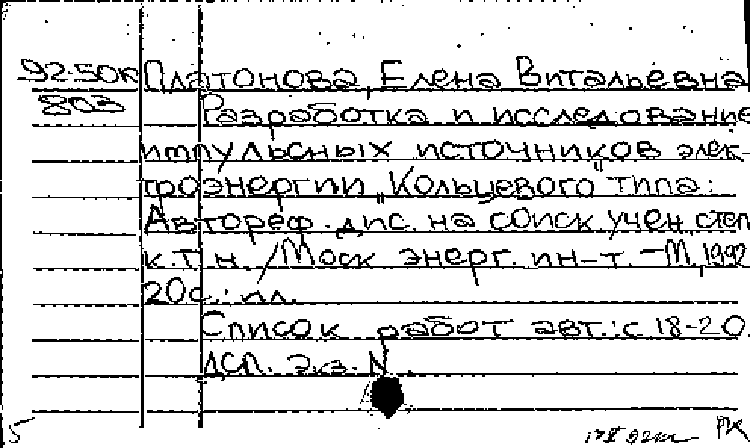 92-50к Платонова, Елена Витальевна
803 Разработка и исследование
импульсных источников элек-
троэнергии „Кольцевого" типа:
Автореф. дис. на соиск. учен. степ.
к.т.н. / Моск. энерг. ин-т. – М., 1992
20с.: ил.
Список работ авт.: с 18-20.
ДСП. Экз. N
5 РК